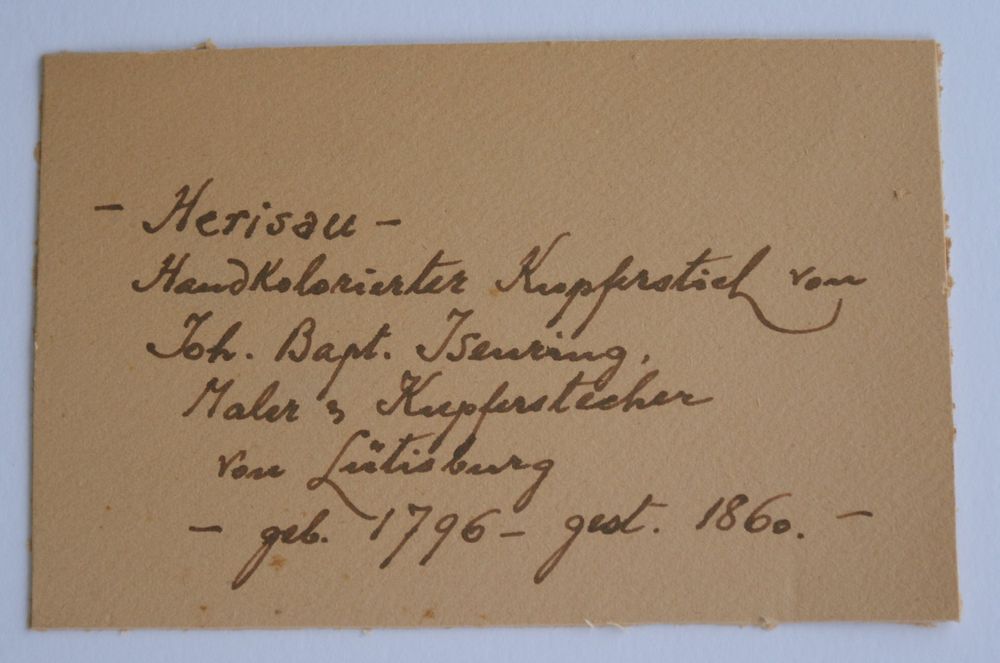 - Herisau -
Handkolorierter Kupferstich von
Joh. Bapt. Isenring,
Maler & Kupferstecher
von Lütisburg
- geb. 1796 - gest. 1860. -